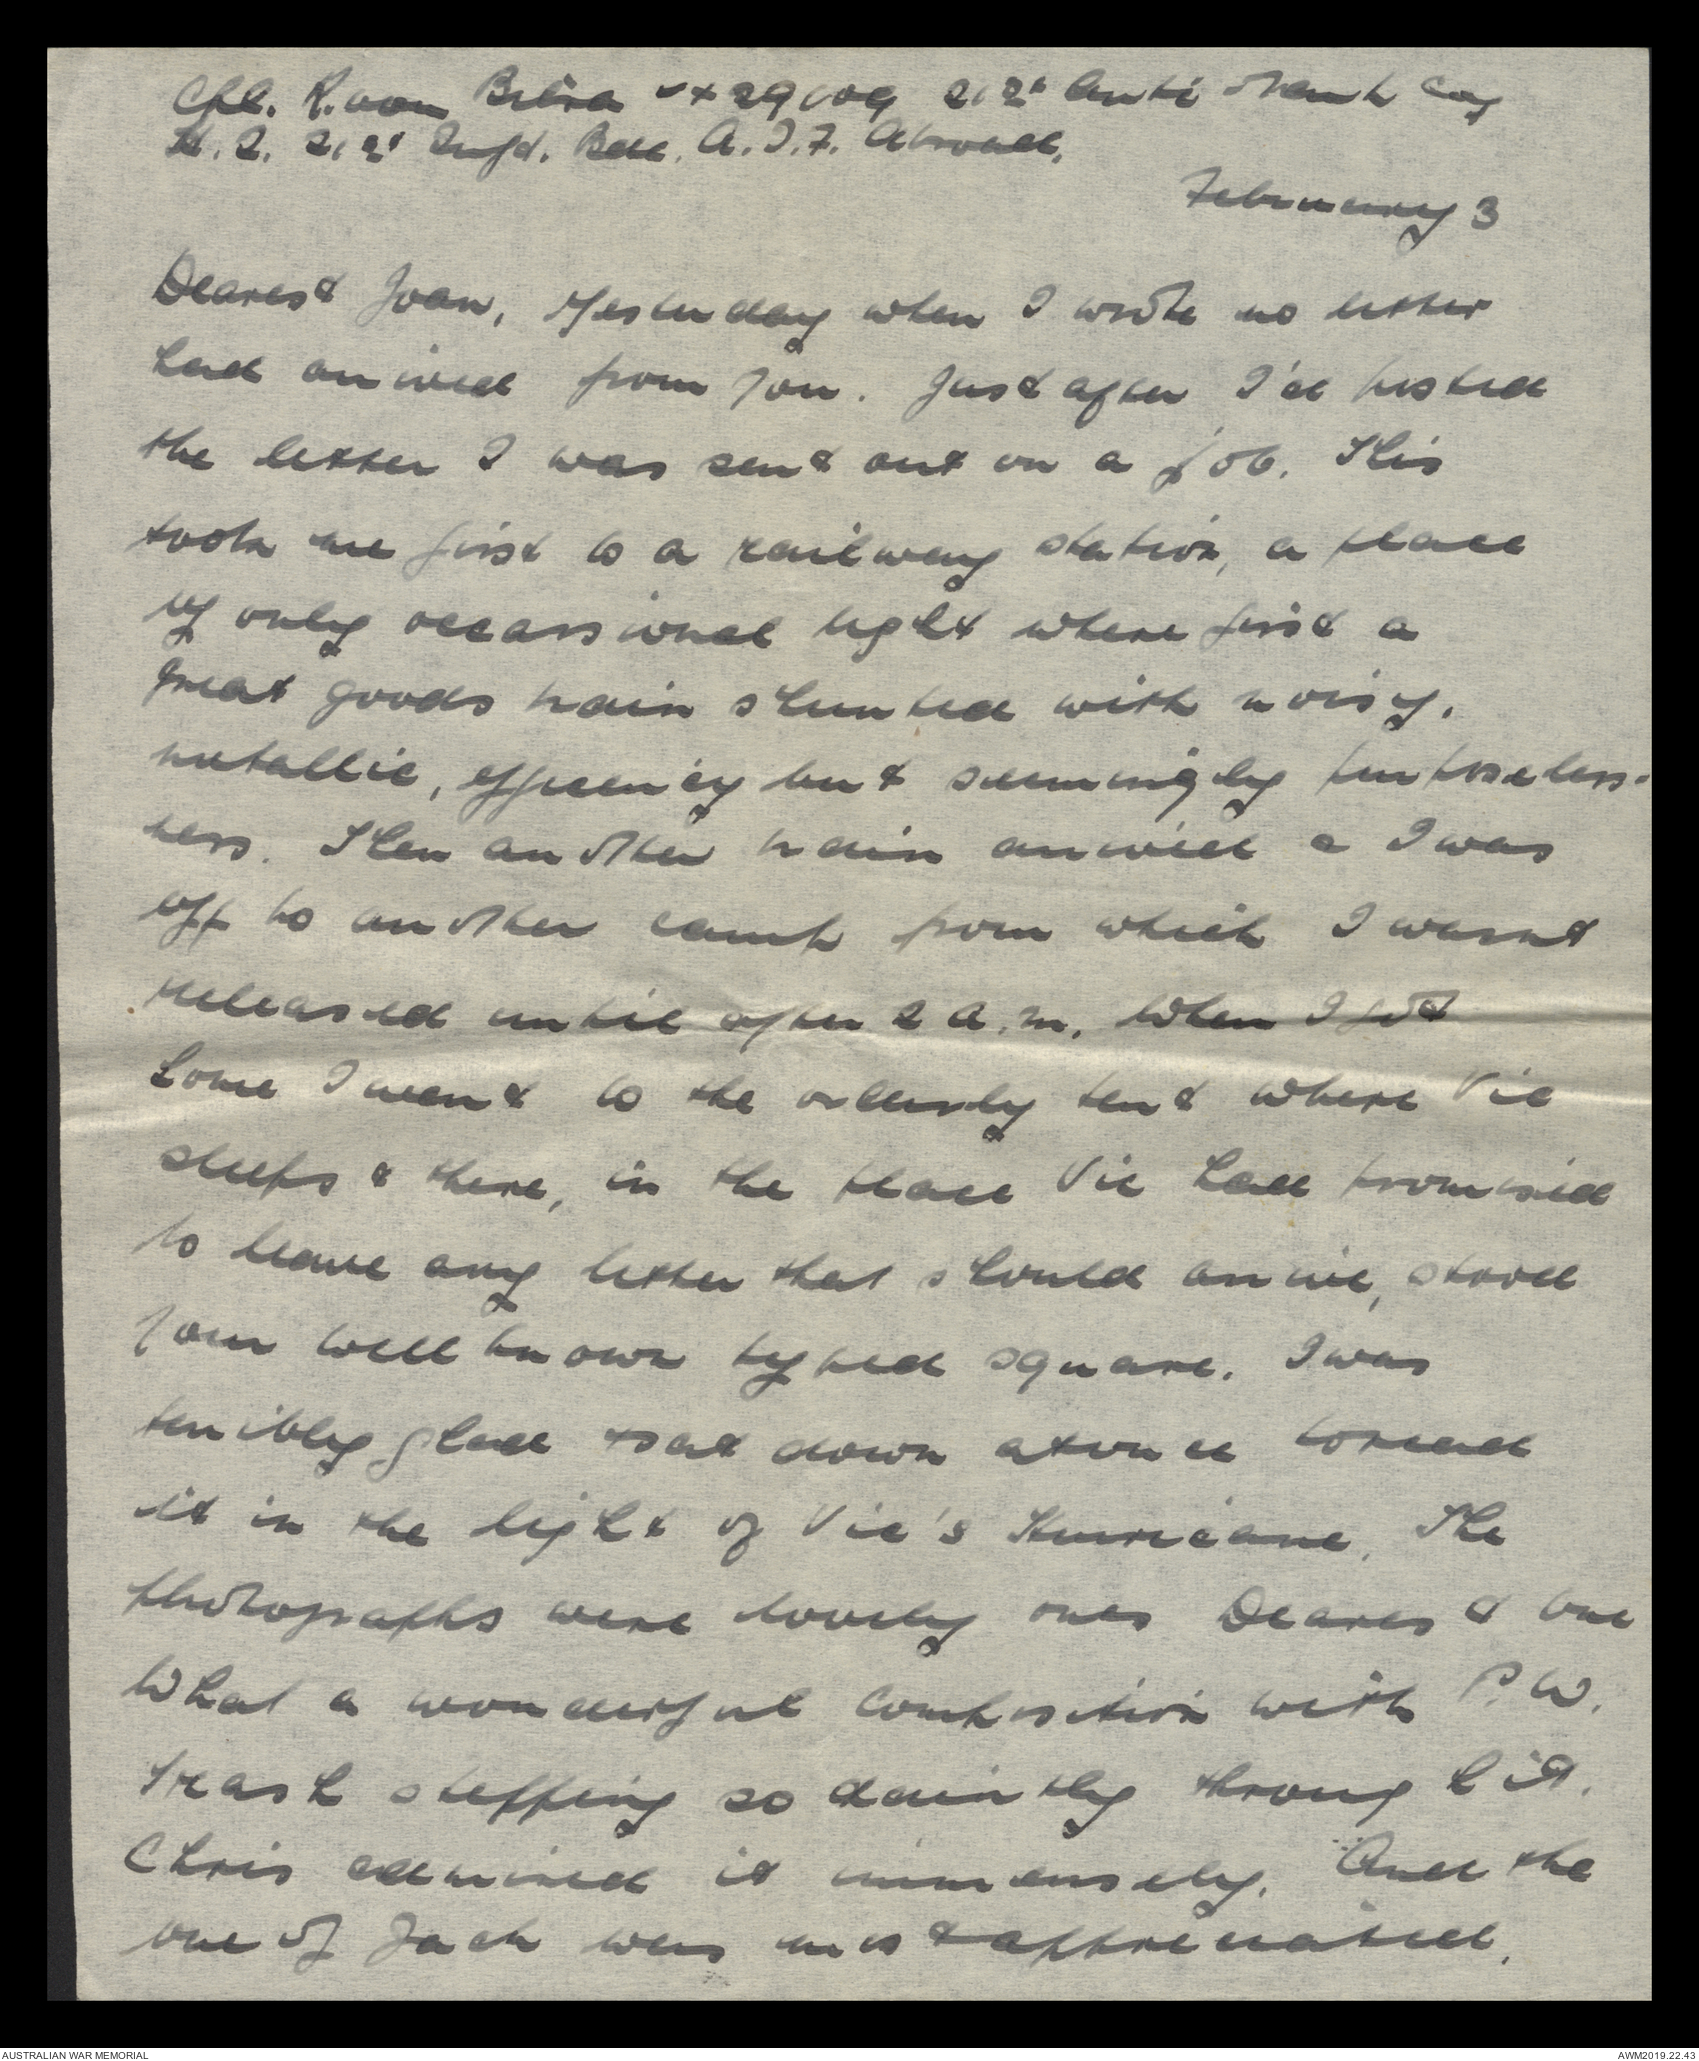 Cpl. R. von Bibra VX29009 2/2nd Anti Tank Coy
H.Q. 21st Inf. Bde. A.I.F. Abroad.
February 3
Dearest Joan, Yesterday when I wrote no letter
had arrived from you. Just after I'd posted
the letter I was sent out on a job. This
took me first to a railway station, a place
of only occassional light where first a
great goods train shunted with noisy,
metallic, efficency but seemingly purposeless-
ness. Then another train arrived & I was
off to another camp from which I wasnt
released until after 2 A.m. When I got
home I went to the orderly tent where Vic
sleeps & there, in the place Vic had promised
to leave any letter that should arrive, stood
your well known typed square. I was
terribly glad & sat down at once to read
it in the light of Vic's Hurricane. The
photographs were lovely ones Dearest one
What a wonderful composition with P.W.
Trask stepping so daintly through it.
Chris admired it immensely. And the
one of Jack was most appreciated.
AUSTRALIAN WAR MEMORIAL
AWM2019.22.43